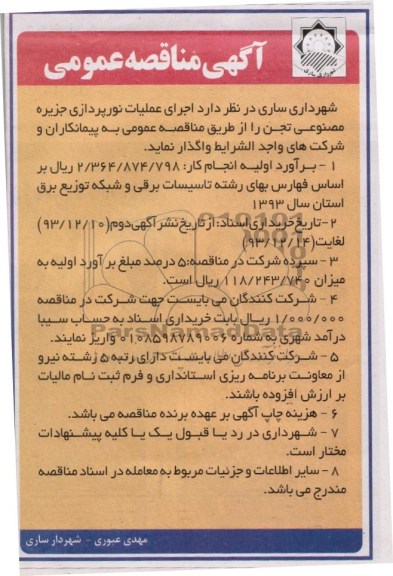 آگهی مناقصه عمومی
شهرداری ساری
شهرداری ساری در نظر دارد اجرای عملیات نورپردازی جزیره
مصنوعی تجن را از طریق مناقصه عمومی به پیمانکاران و
شرکت های واجد الشرایط واگذار نماید.
۱ - برآورد اولیه انجام کار: ۲/۳۶۴/۸۷۴/۷۹۸ ریال بر
اساس فهارس بهای رشته تاسیسات برقی و شبکه توزیع برق
استان سال ۱۳۹۳
۲-تاریخ خریداری اسناد: از تاریخ نشر آگهی دوم(۹۳/۱۲/۱۰)
لغایت(۹۳/۱۲/۱۴)
۳ - سپرده شرکت در مناقصه:۵ درصد مبلغ برآورد اولیه به
میزان ۱۱۸/۲۴۳/۷۴۰ ریال است.
۴ - شرکت کنندگان می بایست جهت شرکت در مناقصه
۱/۰۰۰/۰۰۰ ریال بابت خریداری اسناد به حساب سیبا
درآمد شهری به شماره ۰۱۰۸۵۹۸۷۸۹۰۰۶ واریز نمایند.
۵ - شرکت کنندگان می بایست دارای رتبه ۵ رشته نیرو
از معاونت برنامه ریزی استانداری و فرم ثبت نام مالیات
بر ارزش افزوده باشند.
۶ - هزینه چاپ آگهی بر عهده برنده مناقصه می باشد.
۷ - شهرداری در رد یا قبول یک یا کلیه پیشنهادات
مختار است.
۸ - سایر اطلاعات و جزئیات مربوط به معامله در اسناد مناقصه
مندرج می باشد.
مهدی عبوری - شهردار ساری
ParsNamadData